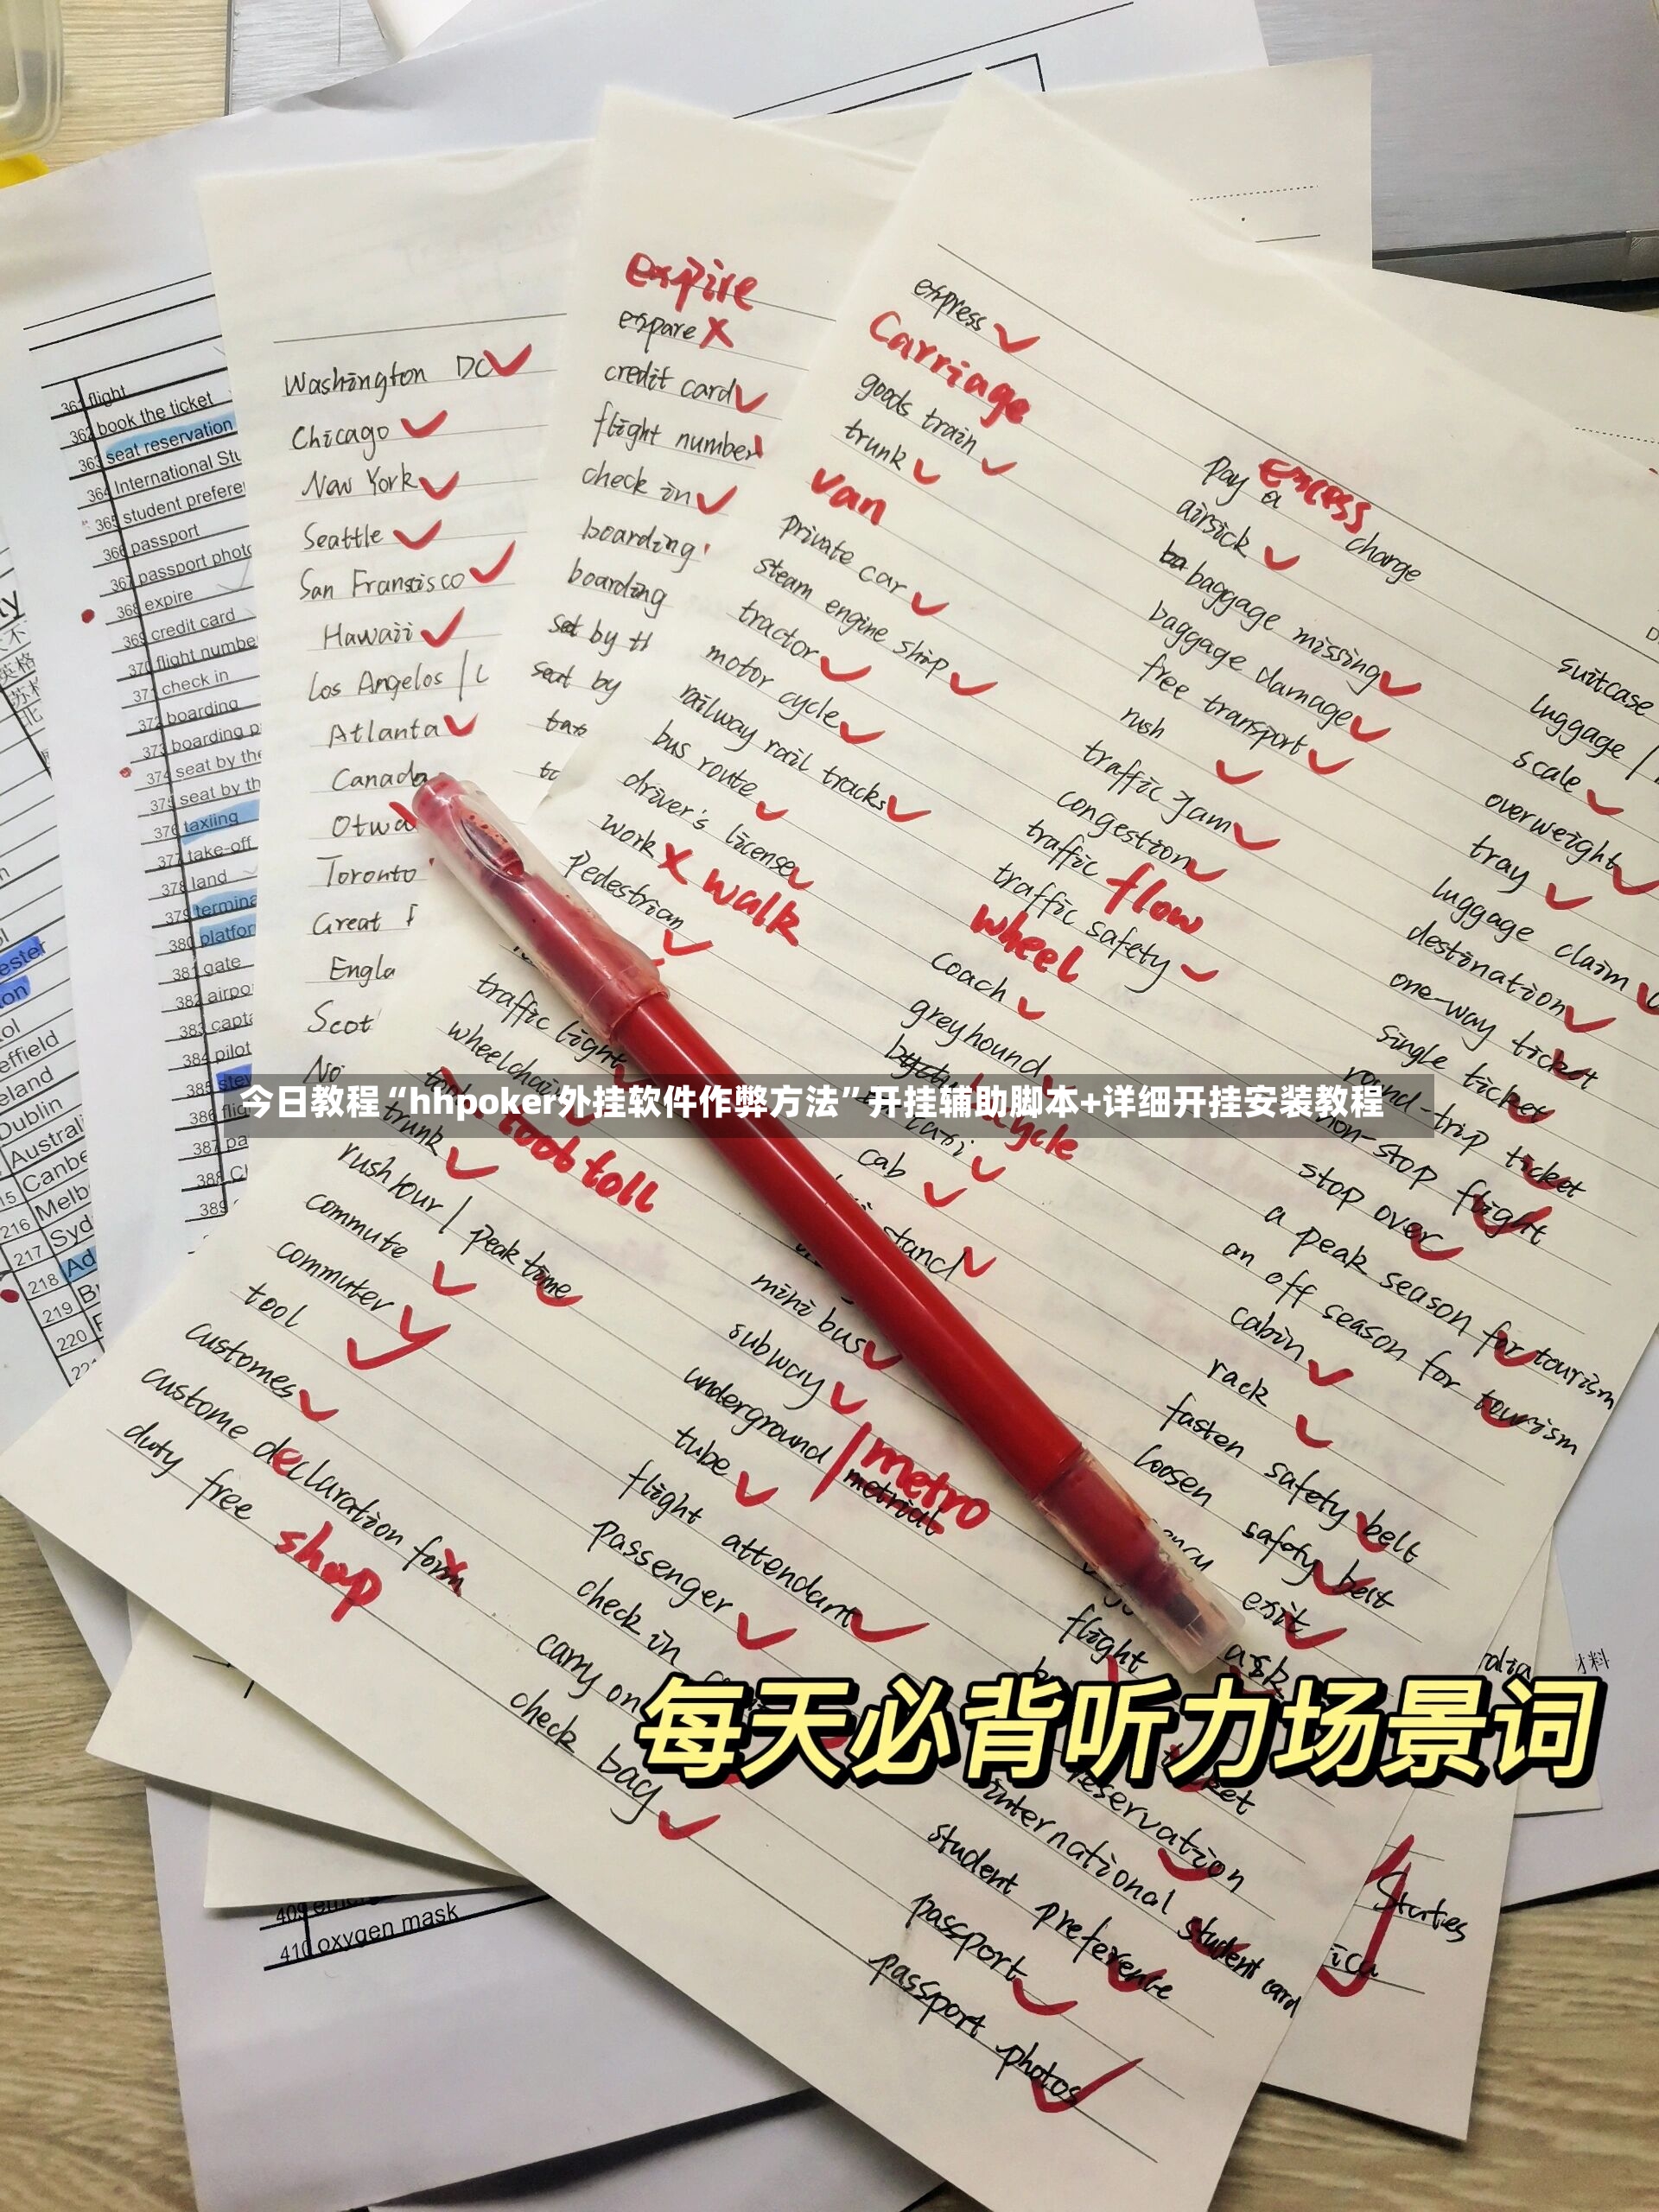 flight
book the ticket
seat reservation
International Stu
student prefere
passport
passport photo
expire
credit card
flight numbe
check in
boarding
boarding p
seat by the
seat by th
taxiing
take-off
land
termina
platfor
gate
airpo
capta
pilot
stev
216 Melb
217 Syd
218 Ad
219
220
409
410 oxygen mask
Washington DC
Chicago
New York
Seattle
San Fransisco
Hawaii
Los Angelos / L
Atlanta
Canada
Otwa
Toronto
Great
Engla
Scot
No
expire
expare
credit card
flight number
check in
boarding
boarding
seat by
express
Carriage
goods train
trunk
van
private car
steam engine ship
tractor
motor cycle
railway rail tracks
bus route
driver's license
work walk
Pedestrian
traffic light
wheelchair
trunk
toll
rush hour / peak time
commute
commuter
tool
customes
custome declaration form
duty free shop
pay a excess charge
airsick
baggage missing
baggage damage
free transport
rush
traffic jam
congestion
traffic flow
traffic safety
wheel
coach
greyhound
cab
stand
mini bus
subway
underground / metro
tube
flight attendant
passenger
check in
carry on
check bag
suitcase
luggage /
scale
overweight
tray
luggage claim
destination
one-way ticket
single ticket
round-trip ticket
non-stop flight
stop over
a peak season for tourism
an off season for tourism
cabin
rack
fasten safety belt
loosen safety belt
exit
flight
reservation
international student card
student preference
passport
passport photos
States
今日教程“hhpoker外挂软件作弊方法”开挂辅助脚本+详细开挂安装教程
每天必背听力场景词